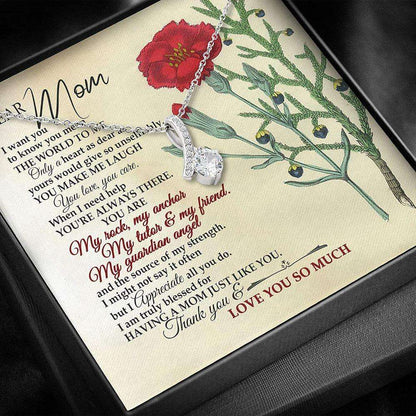 AR Mom
I want you
to know you me
THE WORLD TO ME
Only a heart as dear as
yours would give so unself
YOU MAKE ME LAUGH
You love, you care.
When I need help
YOU'RE ALWAYS THERE.
YOU ARE
My rock, my anchor
My tutor & my friend.
My guardian angel
and the source of my strength.
I might not say it often
but I Appreciate all you do.
I am truly blessed for
HAVING A MOM JUST LIKE YOU.
Thank you &
LOVE YOU SO MUCH